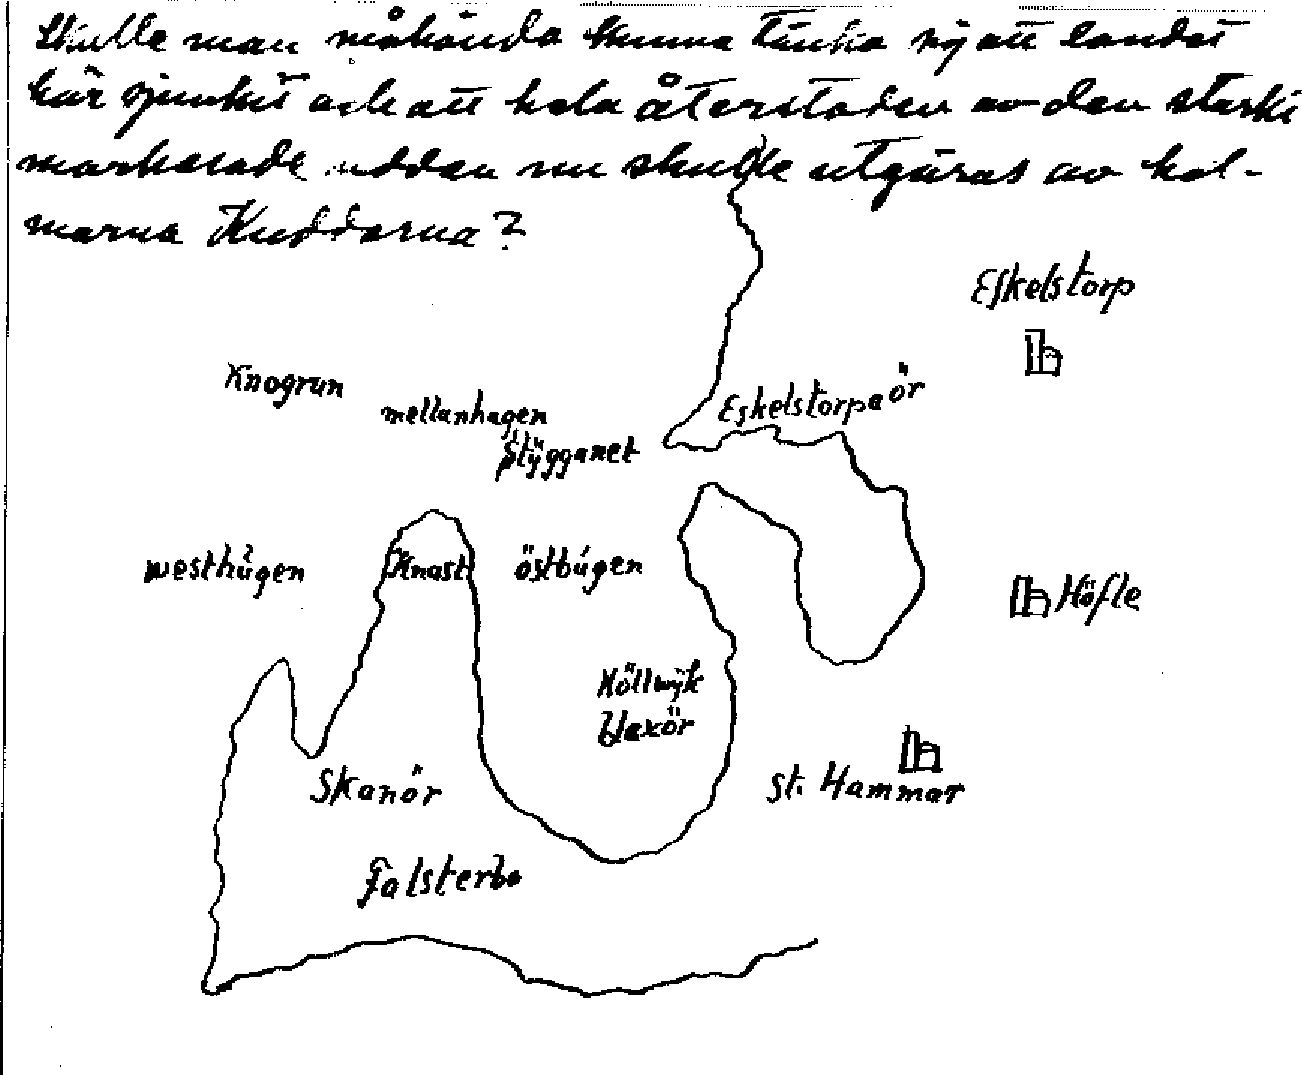 Skulle man måhända kunna tänka sig att landet
här sjunkit och att hela återstoden av den starkt
markerade udden nu skulle utgöras av hol-
marna Kuddarna?
Eskelstorp
Knogrun
mellanhagen
Eskelstorpaör
Stÿgganet
westhúgen
Knast
östbúgen
Höfle
Höllwÿk
blaxör
Skanör
St. Hammar
Falsterbo